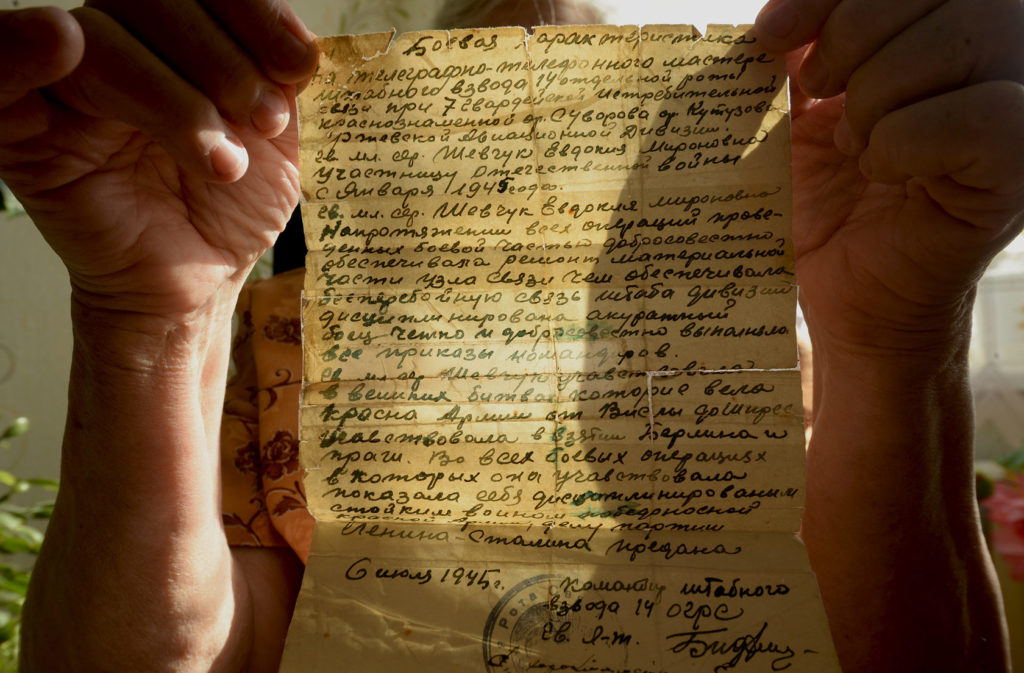 Боевая Характеристика
на телеграфно-телефонного мастера
штабного взвода 14 отдельной роты
связи при 7 Гвардейской Истребительной
краснознаменной ор. Суворова ор. Кутузова
Ржевской Авиационной Дивизии.
гв. мл. сер. Шевчук Евдокия Мироновна
Участницу Отечественной войны
с Января 1945 года.
гв. мл. сер. Шевчук Евдокия мироновна
Напротяжении всех операций прове-
денных боевой частью добросовестно
обеспечивала ремонт материальной
части узла связи чем обеспечивала
бесперебойную связь штаба дивизии
дисциплинирована акуратный
боец. четко и добросовестно выполняла
все приказы командиров.
гв. мл. сер. Шевчук учавствовала
в великих битвах которие вела
Красна Армии от Вислы до Шпрее
Учавствовала в взятии Берлина и
праги. Во всех боевых операциях
в которых она учавствовала
показала себя дисциплинированым
стойким воином победоносной
красной Армии, делу партии
Ленина-Сталина предана
6 июля 1945 г.
Командир штабного
взвода 14 ОГРС
Гв. Л-т.
РОТА